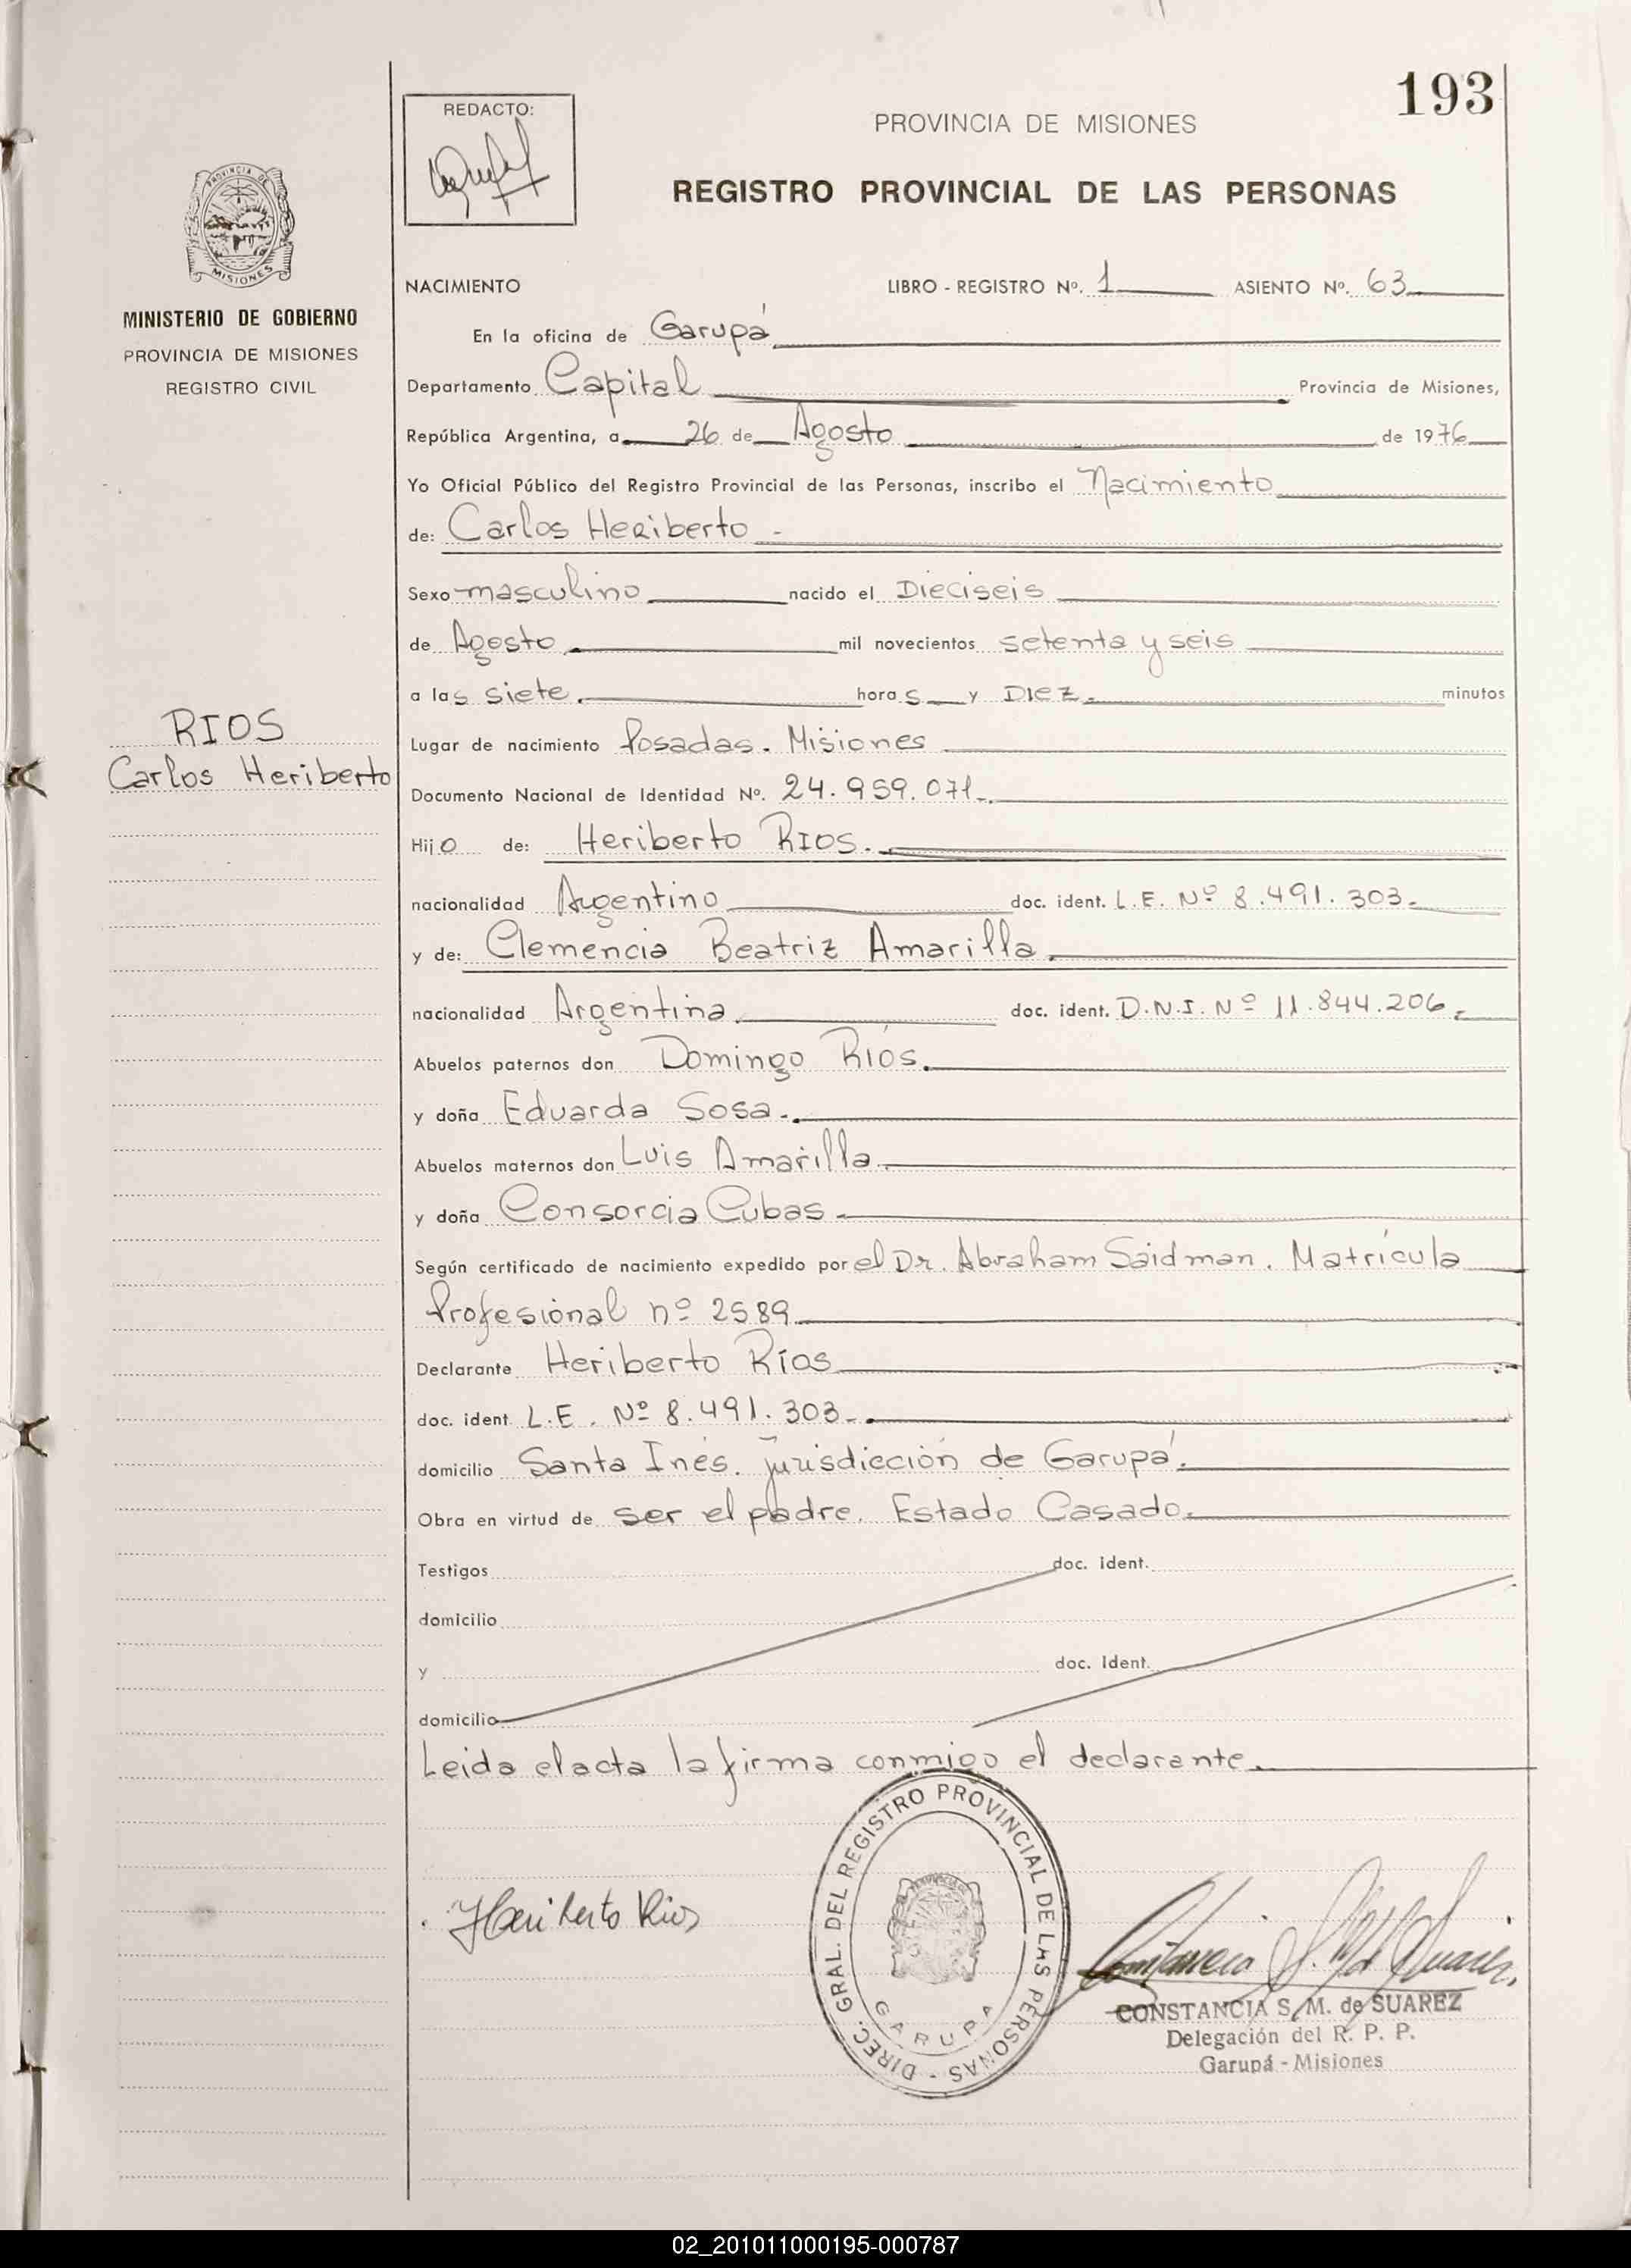 193
REDACTO:
PROVINCIA DE MISIONES
REGISTRO PROVINCIAL DE LAS PERSONAS
PROVINCIA DE
MISIONES
MINISTERIO DE GOBIERNO
PROVINCIA DE MISIONES
REGISTRO CIVIL
RIOS
Carlos Heriberto
NACIMIENTO LIBRO - REGISTRO Nº. 1 ASIENTO Nº. 63
En la oficina de Garupá
Departamento Capital Provincia de Misiones,
República Argentina, a 26 de Agosto de 1976
Yo Oficial Público del Registro Provincial de las Personas, inscribo el Nacimiento
de: Carlos Heriberto -
Sexo masculino nacido el Dieciseis
de Agosto mil novecientos setenta y seis
a las siete. horas y Diez. minutos
Lugar de nacimiento Posadas. Misiones
Documento Nacional de Identidad Nº. 24.959.071-.
Hijo de: Heriberto RIOS.
nacionalidad Argentino doc. ident. L.E. Nº 8.491.303-
y de: Clemencia Beatriz Amarilla.
nacionalidad Argentina. doc. ident. D.N.I. Nº 11.844.206.
Abuelos paternos don Domingo Ríos.
y doña Eduarda Sosa-.
Abuelos maternos don Luis Amarilla.
y doña Consorcia Cubas-
Según certificado de nacimiento expedido por el Dr. Abraham Saidman. Matrícula
Profesional nº 2589
Declarante Heriberto Ríos
doc. ident. L.E. Nº 8.491.303-.
domicilio Santa Inés. jurisdicción de Garupá.
Obra en virtud de ser el padre. Estado Casado.
Testigos doc. ident.
domicilio
y doc. ident.
domicilio
Leida el acta la firma conmigo el declarante.
Heriberto Rios
DIREC. GRAL. DEL REGISTRO PROVINCIAL DE LAS PERSONAS -
GARUPA
Constancia S. M. de Suarez.
CONSTANCIA S. M. de SUAREZ
Delegación del R. P. P.
Garupá - Misiones
02_201011000195-000787